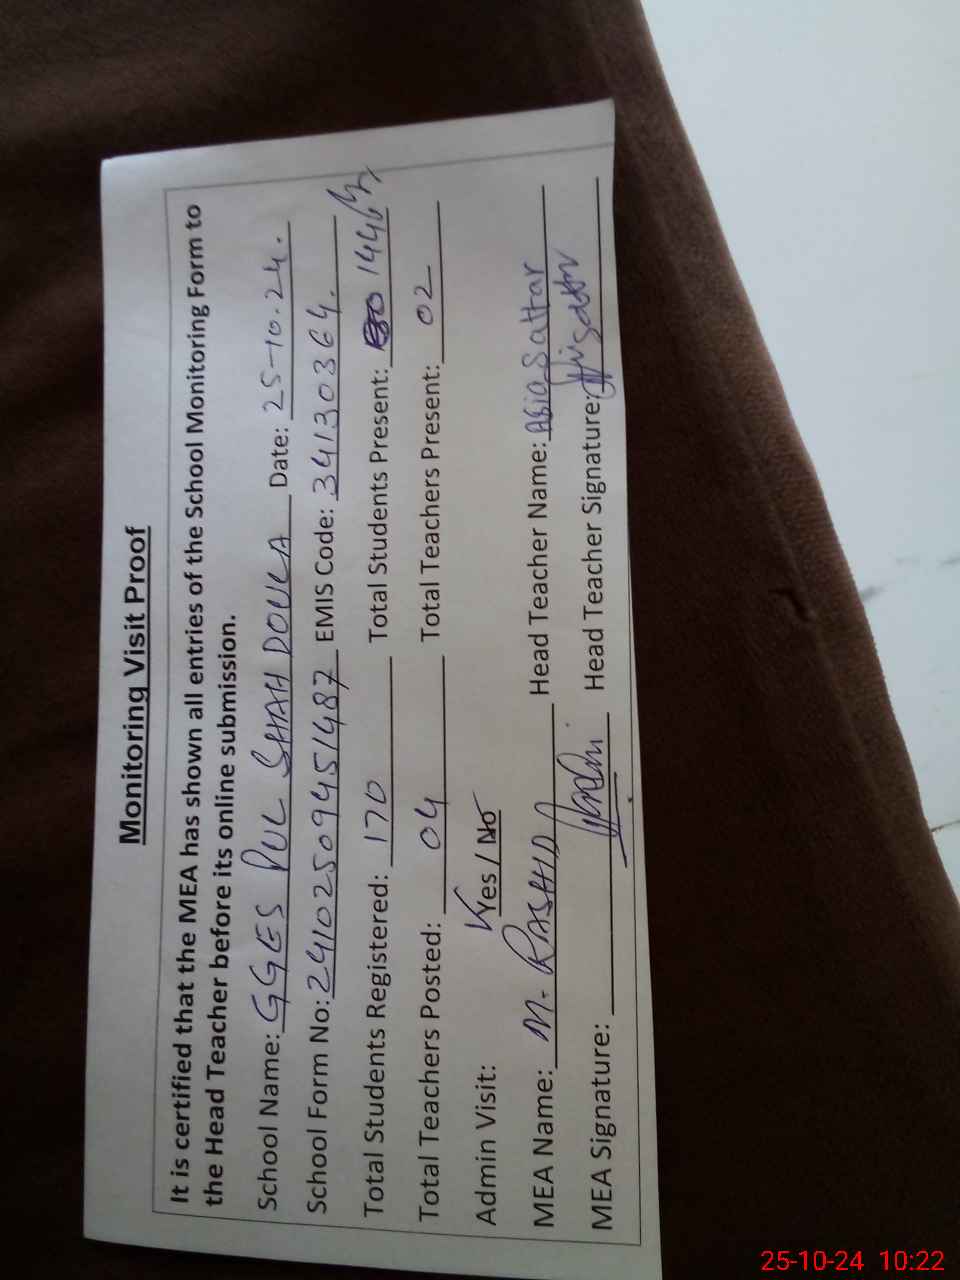 Monitoring Visit Proof
It is certified that the MEA has shown all entries of the School Monitoring Form to
the Head Teacher before its online submission.
School Name: GGES PUL SHAH DOULA Date: 25-10-24.
School Form No: 241025094514 87 EMIS Code: 34130364.
Total Students Registered: 170 Total Students Present: 144
Total Teachers Posted: 04 Total Teachers Present: 02
Admin Visit: Yes / No
MEA Name: M. RASHID Head Teacher Name: Asia Sattar
MEA Signature: Head Teacher Signature:
25-10-24 10:22